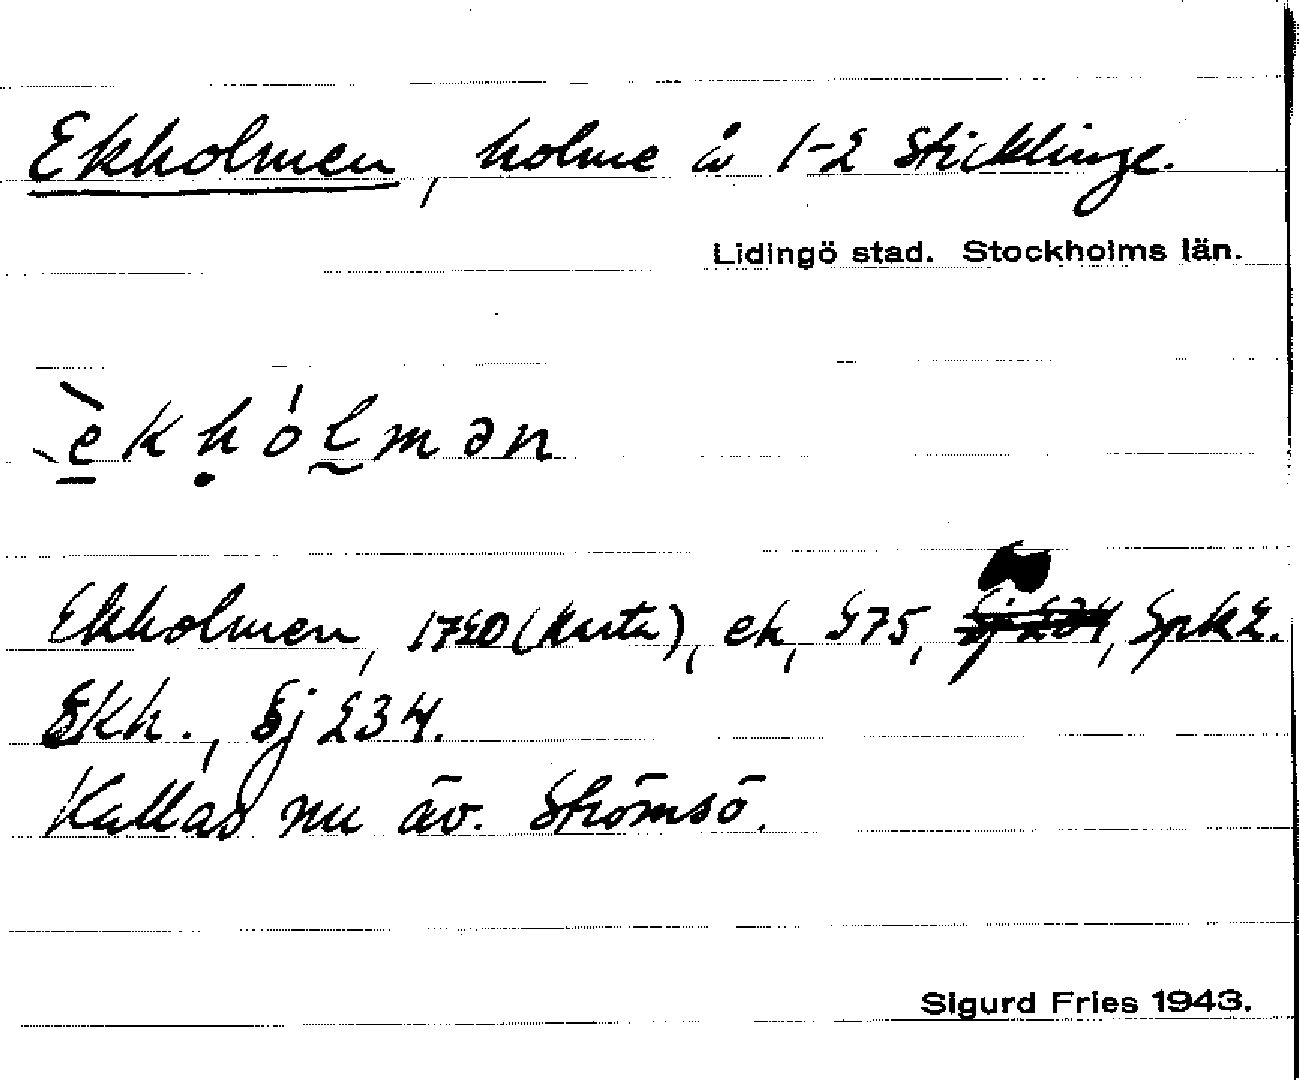 Ekholmen, holme å 1-2 Sticklinge.
Lidingö stad. Stockholms län.
èkhólmən
Ekholmen, 1720 (karta), ek, S75, Sj 234, Spk2.
Ekh., Sj 234.
Kallas nu äv. Strömsö.
Sigurd Fries 1943.